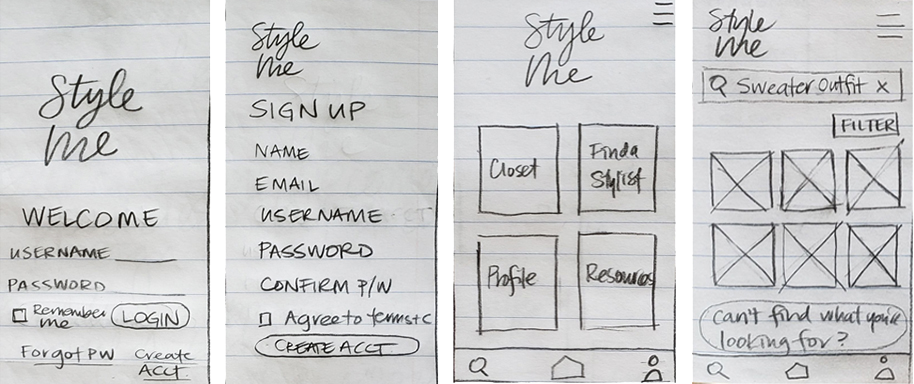 Style
Me
WELCOME
USERNAME
PASSWORD
Remember
me
LOGIN
Forgot PW
Create
ACCT
Style
Me
SIGN UP
NAME
EMAIL
USERNAME
PASSWORD
CONFIRM P/W
Agree to terms+c
CREATE ACCT
Style
Me
Closet
Find a
Stylist
Profile
Resources
Style
Me
Sweater outfit x
FILTER
Can't find what you're
looking for?